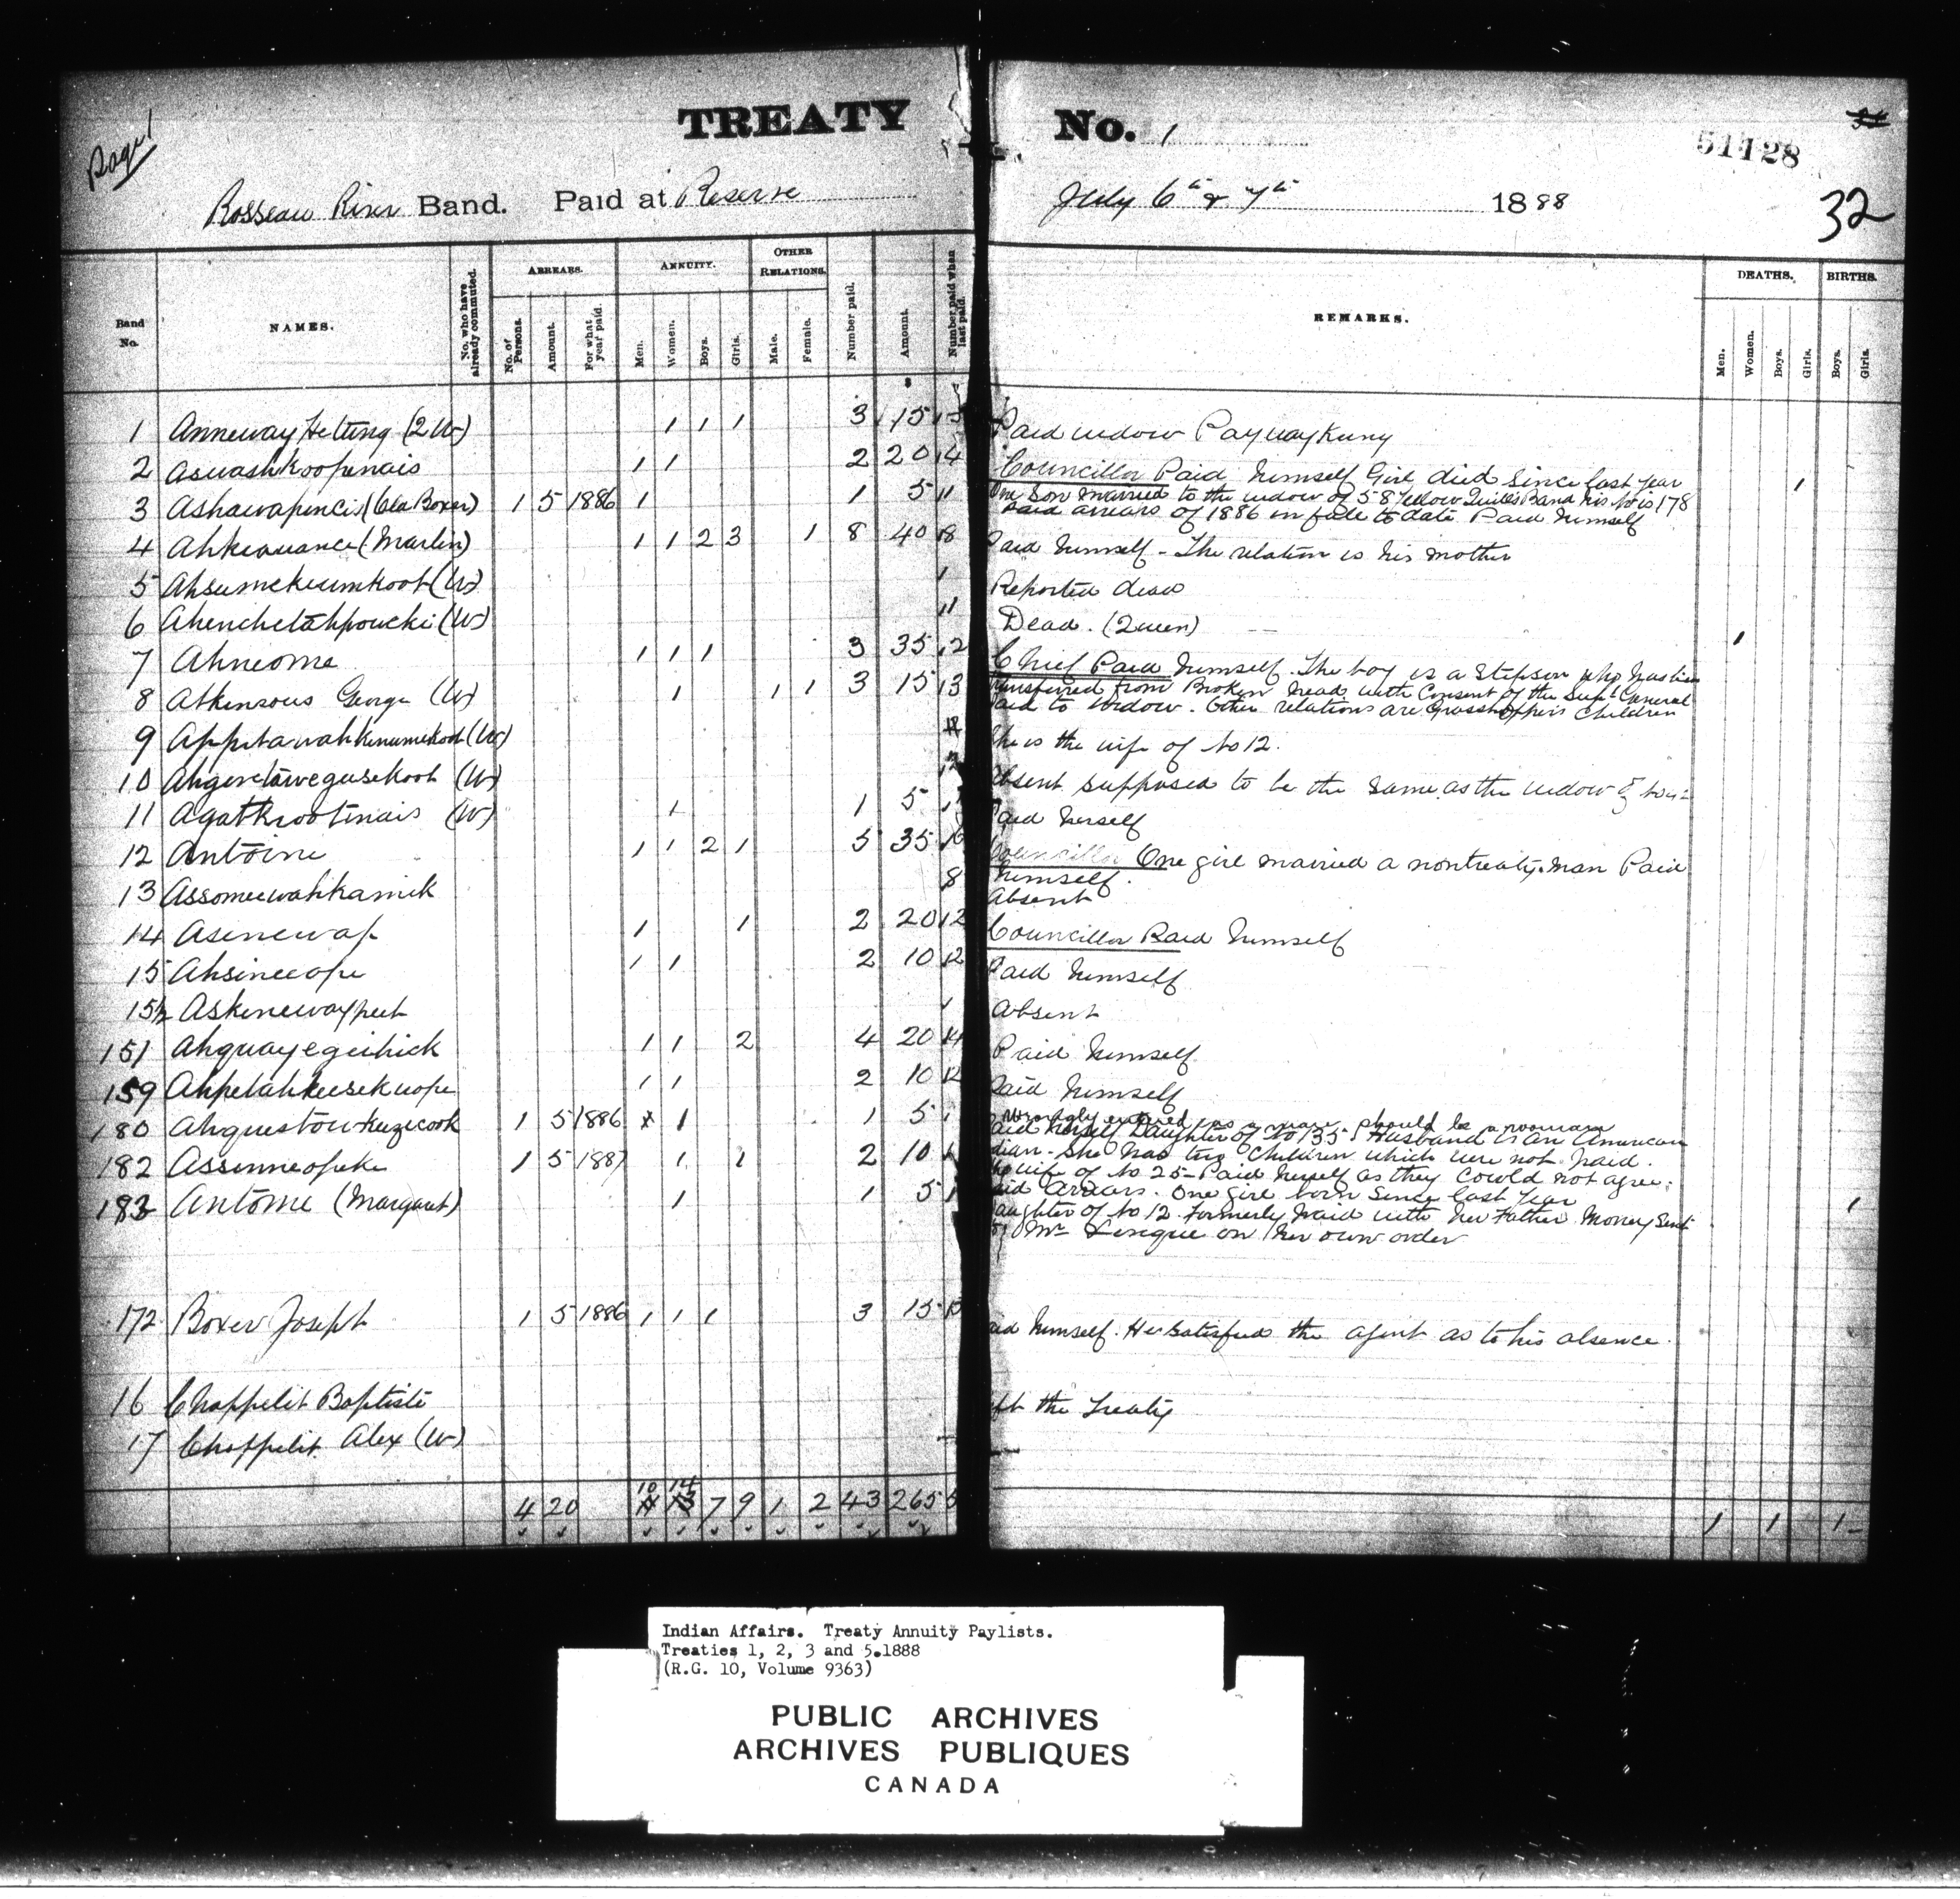 Page 1
TREATY No. 1
51128
32
Rosseau River Band. Paid at Reserve July 6th & 7th 1888
Band No. NAMES. No. who have already commuted. ARREARS. No. of Persons. Amount. For what year paid. ANNUITY. Men. Women. Boys. Girls. OTHER RELATIONS. Male. Female. Number paid. Amount. Number paid when last paid. REMARKS. DEATHS. Men. Women. Boys. Girls. BIRTHS. Boys. Girls.
1 Anneway (2 W) 1 1 1 3 15 Paid widow
2 Aswashkoopenais 1 1 2 20 4 Councillor Paid himself Girl died since last year 1
3 Ashawapencis (Cla Boxer) 1 5 1886 1 1 5 11 One Son married to the widow of 58 Yellow Quills Band his No is 178
Paid arrears of 1886 in full to date Paid himself
4 (Martin) 1 1 2 3 1 8 40 8 Paid himself - The relation is his mother
5 (W) 1 Reported dead
6 (W) Dead. 1
7 Ahneome 1 1 1 3 35 2 Chief Paid himself. The boy is a Stepson who has been
transferred from Broken Head with Consent of the Supt General
8 Atkinsons George (W) 1 1 1 3 15 3 Paid to widow. Other relations are Grasshoppers Children
9 (W) She is the wife of No 12.
10 (W) Absent supposed to be the same as the widow of
11 Agathrootinais (W) 1 1 5 Paid herself
12 Antoine 1 1 2 1 5 35 Councillor One girl married a nontreaty man Paid
himself.
13 Assomeewahkamik 8 Absent
14 Asenewap 1 1 2 20 2 Councillor Paid himself
15 Ahsineeope 1 1 2 10 2 Paid himself
15½ Askenewaypeet Absent
151 Ahquayegeihick 1 1 2 4 20 4 Paid himself
159 Ahpetahkeesekuope 1 1 2 10 2 Paid himself
wrongly entered as a man should be a woman
180 1 5 1886 1 1 5 Paid herself Daughter of No 135. Husband is an American
Indian. She has two Children which were not paid.
182 Assinneopeke 1 5 1887 1 1 2 10 The wife of No 25 - Paid herself as they could not agree.
Paid Arrears. One girl born since last year 1
183 Antome (Margaret) 1 1 5 1 Daughter of No 12. Formerly paid with her Father Money Sent
by Mr on her own order
172 Boxer Joseph 1 5 1886 1 1 1 3 15 Paid himself. He satisfied the agent as to his absence.
16 Chappelit Baptiste left the Treaty
17 Chappelit Alex (W)
10 14
4 20 7 9 1 2 43 265 1 1 1
Indian Affairs. Treaty Annuity Paylists.
Treaties 1, 2, 3 and 5.1888
(R.G. 10, Volume 9363)
PUBLIC ARCHIVES
ARCHIVES PUBLIQUES
CANADA